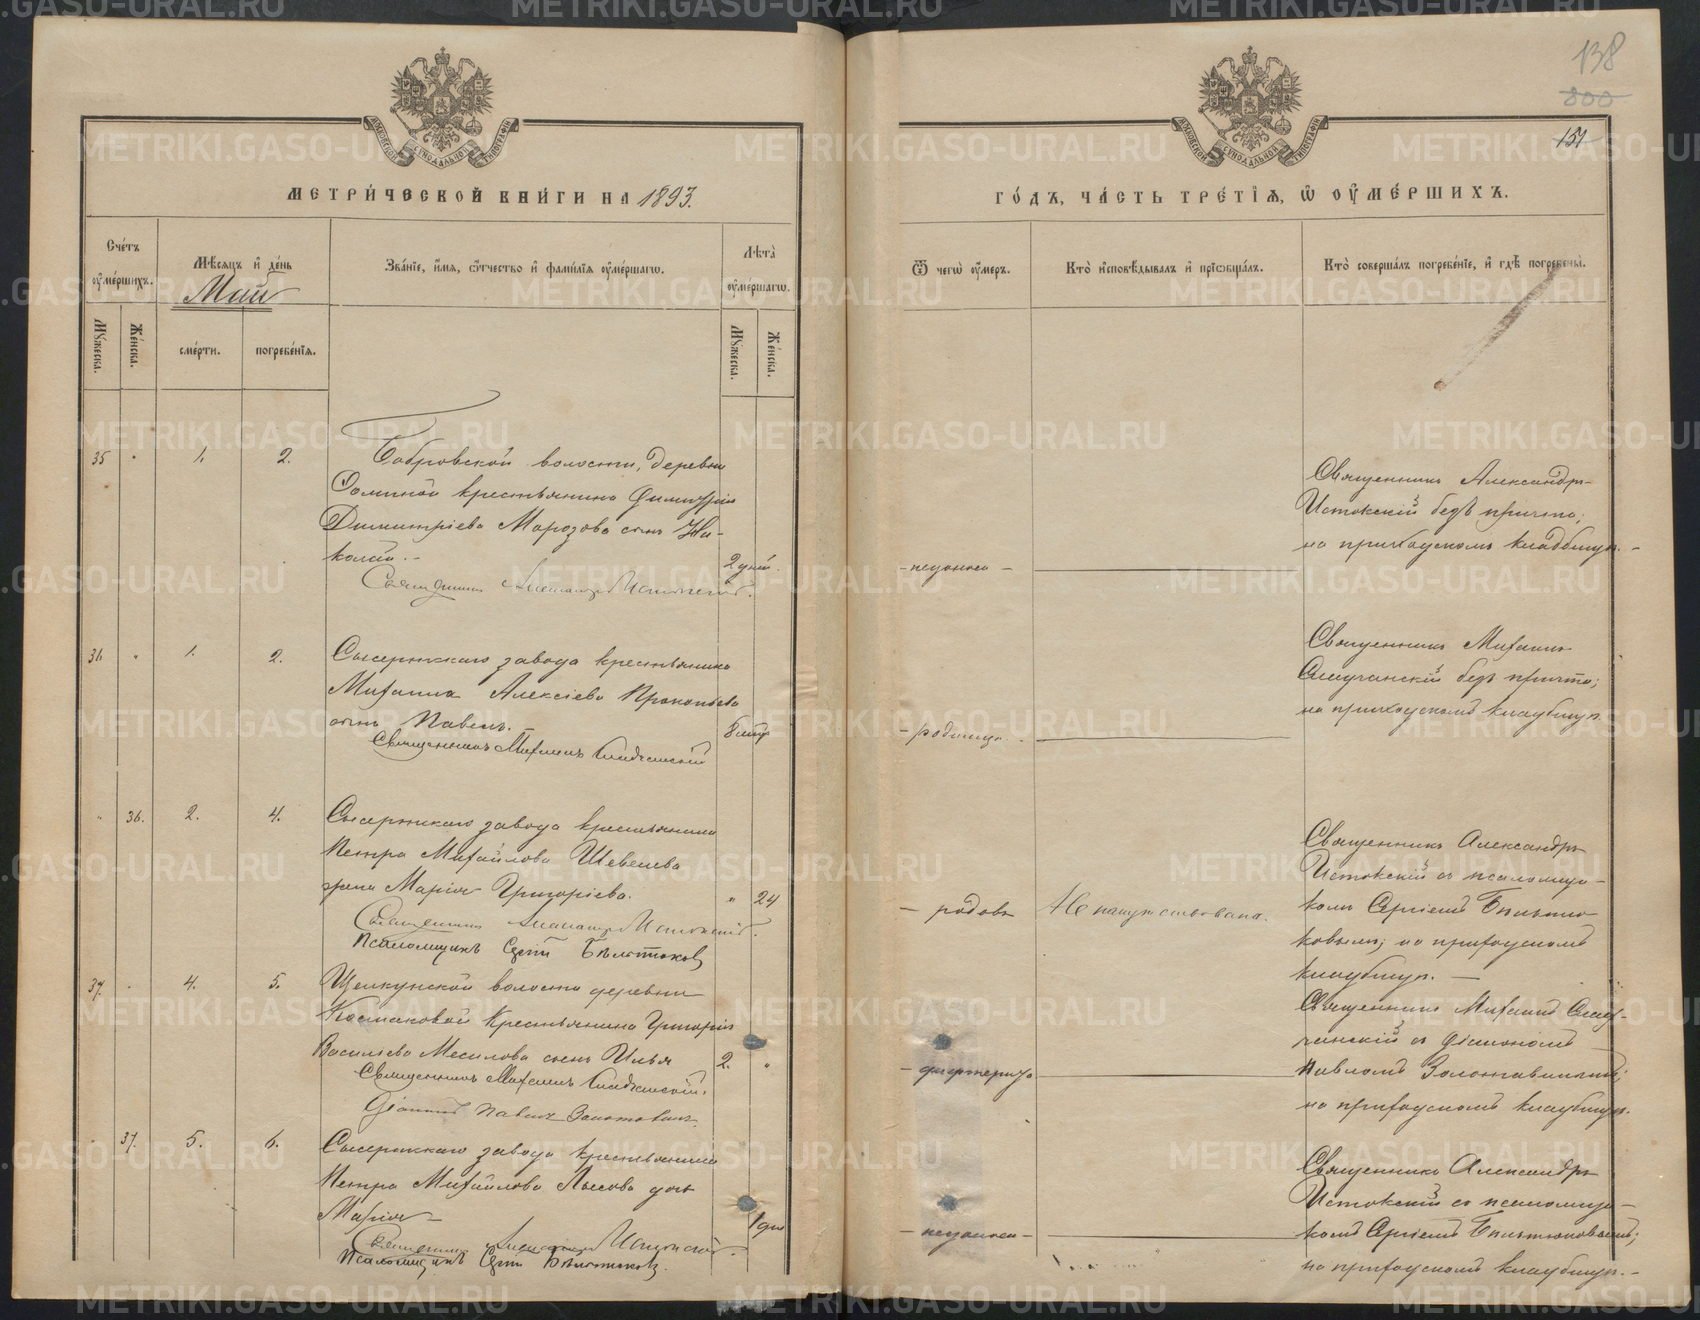 138
800
151
МЕТРИ́ЧЕСКОЙ КНИ́ГИ НА 1893.
ГО́ДЪ, ЧА́СТЬ ТРЕ́ТІѦ, Ѡ҆ ОУ҆МЕ́РШИХЪ.
Сче́тъ оу҆ме́ршихъ.
Мѣ́сяцъ и҆ де́нь
Май
Зва́нїе, и҆́мя, ѻ҆́тчество и҆ фами́лїя оу҆ме́ршагѡ.
Лѣ́та оу҆ме́ршагѡ.
Ѿ чегѡ̀ оу҆́меръ.
Кто̀ и҆сповѣ́дывалъ и҆ прїѡбща́лъ.
Кто̀ соверша́лъ погребе́нїе, и҆ гдѣ̀ погребены̀.
Мꙋ́жеска.
Же́нска.
сме́рти.
погребе́нїя.
Мꙋ́жеска.
Же́нска.
35 " 1. 2.
Бобровской волости, деревни
Фоминой крестьянина Димитрія
Димитріева Морозова сынъ Ни-
колай.
2 дней.
Священникъ Александръ Истокскій.
- недоноск -
Священникъ Александръ
Истокскій безъ причта;
на приходскомъ кладбищѣ. -
36 " 1. 2.
Сысертскаго завода крестьянина
Михаила Алексіева Прокопьева
сынъ Павелъ. -
Священникъ Михаилъ
- родимца. -
Священникъ Михаилъ
безъ причта;
на приходскомъ кладбищѣ.
" 36. 2. 4.
Сысертскаго завода крестьянина
Петра Михайлова Шевелева
жена Марія Григоріева.
" 24
Священникъ Александръ Истокскій.
Псаломщикъ Сергій Бѣльтюковъ
- родовъ
Не напутствована.
Священникъ Александръ
Истокскій съ псаломщи-
комъ Сергіемъ Бельтю-
ковымъ; на приходскомъ
кладбищѣ. -
37. " 4. 5.
Щелкунской волости деревни
Космаковой крестьянина Григорія
Васильева Месилова сынъ Илья
2. "
Священникъ Михаилъ
Діаконъ Павелъ Золотавинъ.
- дифтерита
Священникъ Михаилъ
съ діакономъ
Павломъ Золотавинымъ;
на приходскомъ кладбищѣ.
" 37. 5. 6.
Сысертскаго завода крестьянина
Петра Михайлова Лысова дочь
Марія -
1 дня
Священникъ Александръ Истокскій.
Псаломщикъ Сергій Бѣльтюковъ.
- недоноск -
Священникъ Александръ
Истокскій съ псаломщи-
комъ Сергіемъ Бельтюковымъ;
на приходскомъ кладбищѣ. -
METRIKI.GASO-URAL.RU